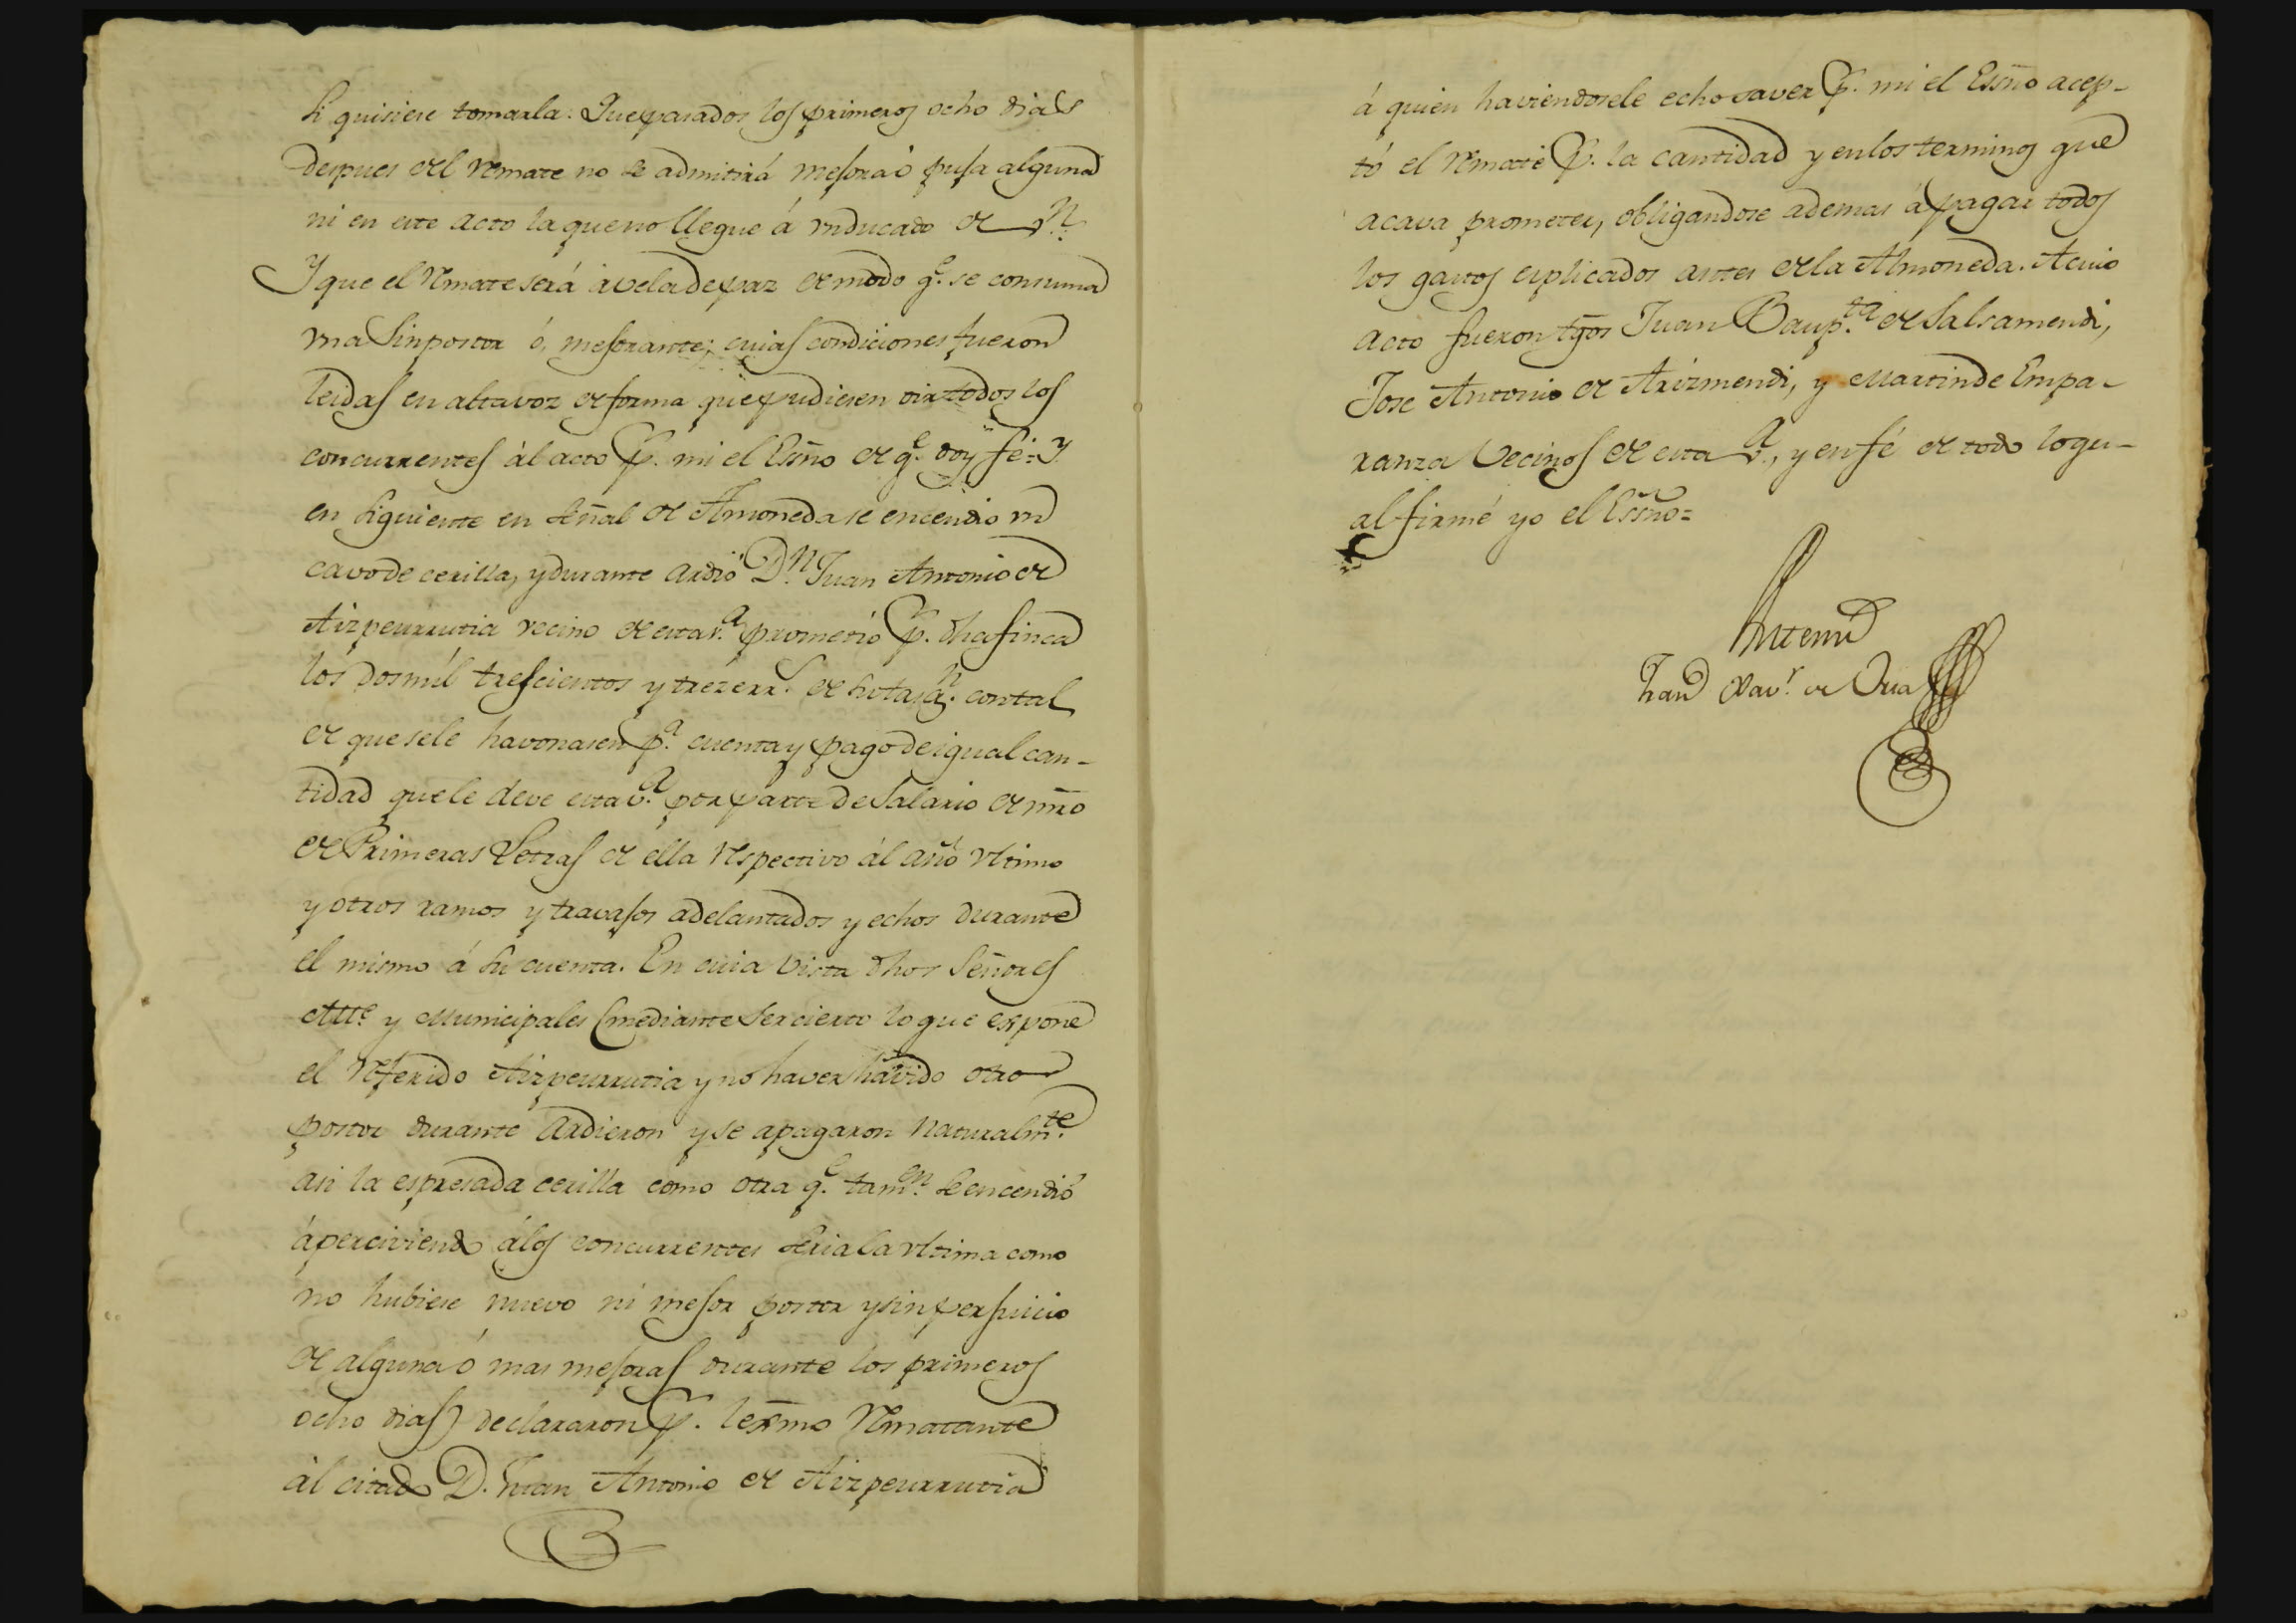 si quisiere tomarla: Que pasados los primeros ocho dias
despues del remate no se admitirá mejora ó puja alguna
ni en este acto la que no llegue á un ducado de v.n:
Y que el remate será á vela de paz de modo q.e se consuma
una sin postor ó, mejorante; cuias condiciones fueron
leidas en alta voz de forma que pudiesen oir todos los
concurrentes ál acto p.r mi el Essño de q.e doy fé: Y
en siguiente en señal de Almoneda se encendio un
cavo de cerilla, y durante ardió D.n Juan Antonio de
Aizpeurrutia vecino de esta v.a prometió p.r dha finca
los dos mil trescientos y treze rr.s de su tas.n con tal
de que se le havonasen p.a cuenta y pago de igual can-
tidad que le deve esta v.a por parte de Salario de mro
de Primeras Letras de ella respectivo ál año ultimo
y otros ramos y travajos adelantados y echos durante
el mismo á su cuenta. En cuia vista dhos Señores
Alle y Municipales (mediante ser cierto lo que expone
el referido Aizpeurrutia y no haver havido otro
postor durante ardieron y se apagaron naturalm.te
asi la espresada cerilla como otra q.e tam.en se encendió
áperciviendo álos concurrentes seria la ultima como
no hubiese nuevo ni mejor postor y sin perjuicio
de alguna ó mas mejoras durante los primeros
ocho dias) declararon p.r lexmo rematante
ál citado D. Juan Antonio de Aizpeurrutia
á quien haviendosele echo saver p.r mi el Essño acep-
tó el remate p.r la cantidad y en los terminos que
acava prometer, obligandose ademas á pagar todos
los gastos esplicados antes de la Almoneda. A cuio
acto fueron tgos Juan Baup.ta de Salsamendi,
Jose Antonio de Arizmendi, y Martin de Empa-
ranza vecinos de esta v.a, y en fé de todo lo qu-
al firmé yo el Essño=
Antemi
Fran Xav.r de Oria